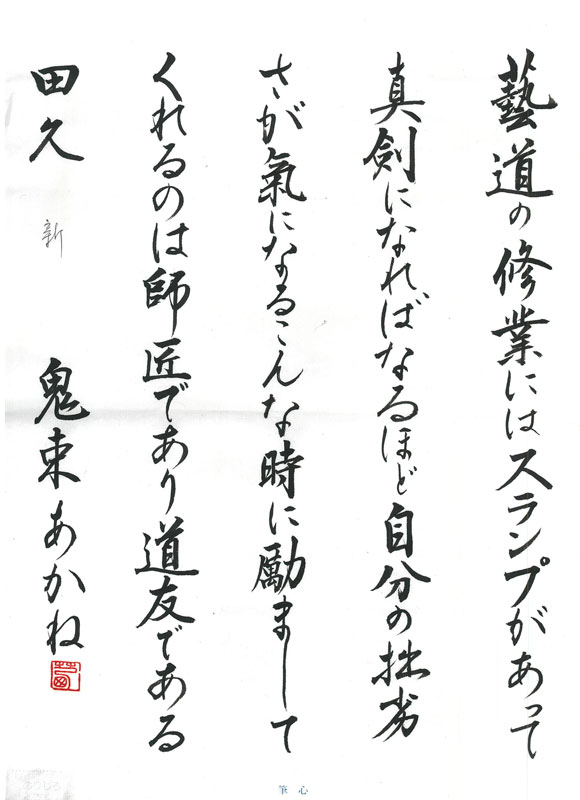 藝道の修業にはスランプがあって
真剣になればなるほど自分の拙劣
さが氣になるこんな時に励まして
くれるのは師匠であり道友である
田久 新 鬼束あかね
筆心